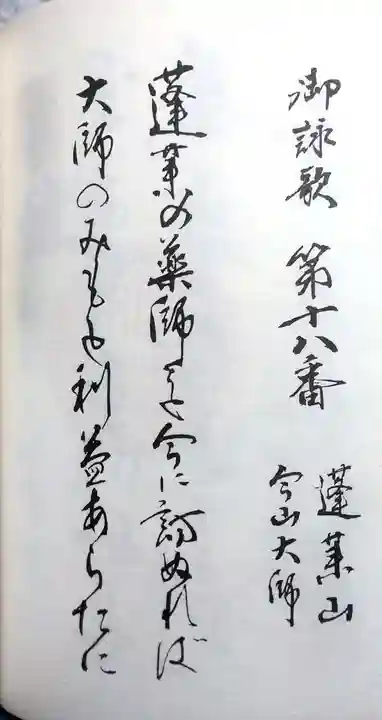 御詠歌 第十八番
蓬莱山
今山大師
蓬莱の薬師を今に訪ぬれば
大師のみもと利益あらたに